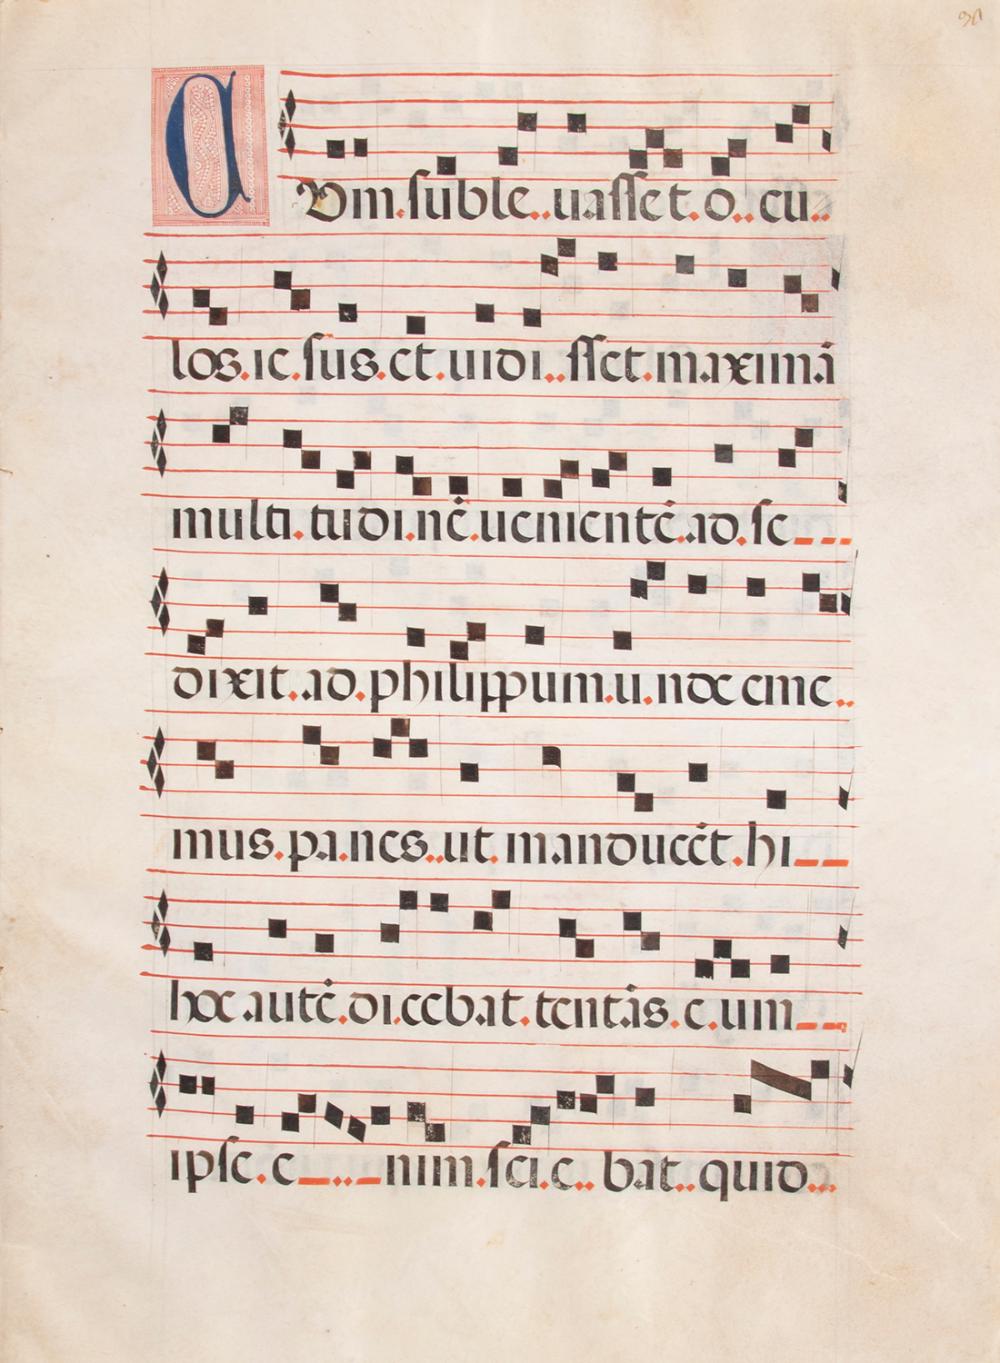 CUm.suble..uasset.o..cu..
los.ie.sus.et.uidi..sset.maximā
multi.tudi.nē.uenientē.ad.se
dixit.ad.philippum.u.nde eme..
mus.pa.nes..ut.manducēt.hi
hoc.autē.di.cebat.tentās.e.um
ipse.e..nim.sci.e..bat..quid..